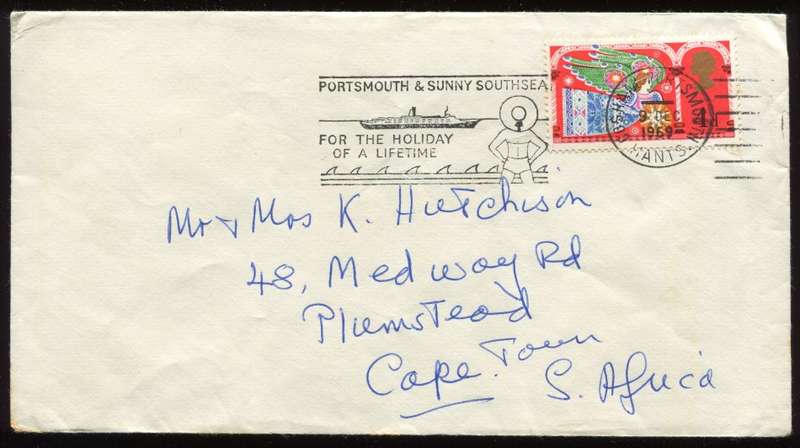 PORTSMOUTH & SUNNY SOUTHSEA
FOR THE HOLIDAY
OF A LIFETIME
9 DEC
1969
HANTS
Mr & Mrs K. Hutchison
48, Medway Rd
Plumstead
Cape Town
S. Africa